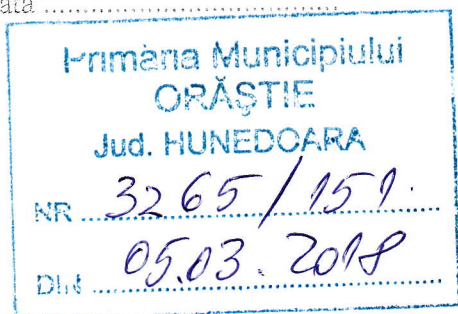 Primăria Municipiului
ORĂŞTIE
Jud. HUNEDOARA
NR 3265/151.
DIN 05.03.2018